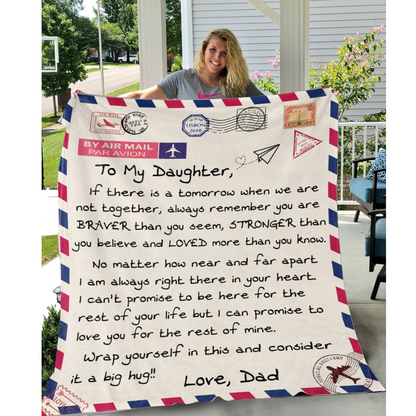 BY AIR MAIL
PAR AVION
LISBON
2018
To My Daughter,
If there is a tomorrow when we are
not together, always remember you are
BRAVER than you seem, STRONGER than
you believe and LOVED more than you know.
No matter how near and far apart
I am always right there in your heart.
I can't promise to be here for the
rest of your life but I can promise to
love you for the rest of mine.
Wrap yourself in this and consider
it a big hug!!
Love, Dad